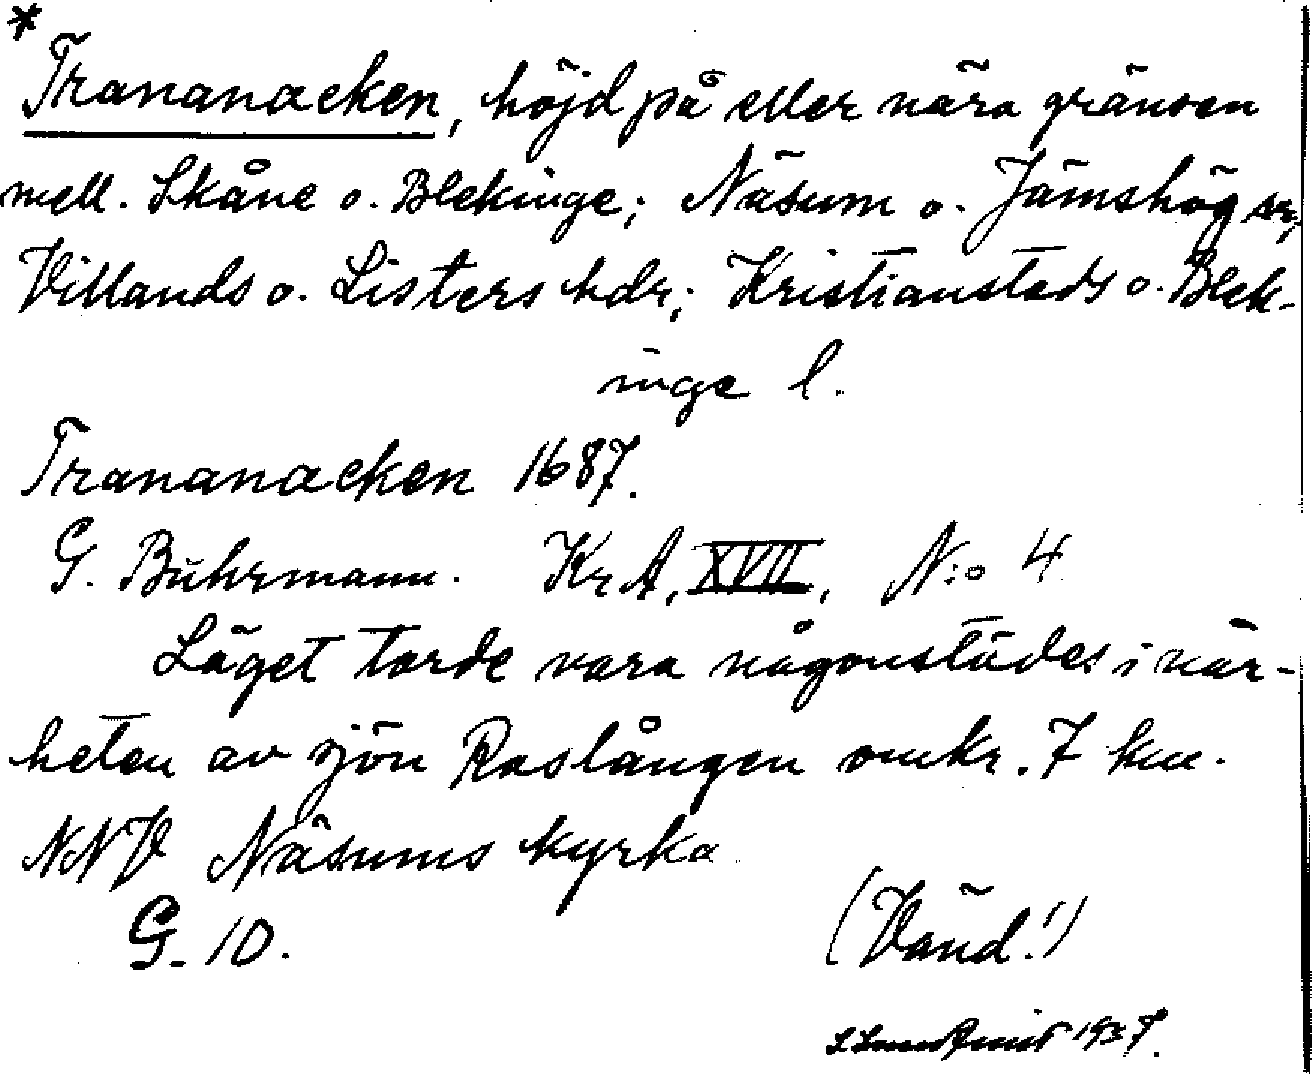 *
Trananacken, höjd på eller nära gränsen
mell. Skåne o. Blekinge; Näsum o. Jämshög snr,
Villands o. Listers hdr; Kristianstads o. Blek-
inge l.
Trananacken 1687.
G. Buhrmann. KrA, XVII, N:o 4
Läget torde vara någonstädes i när-
heten av sjön Raslången omkr. 7 km.
NNV Näsums kyrka.
G. 10. (Vänd!)
1937.